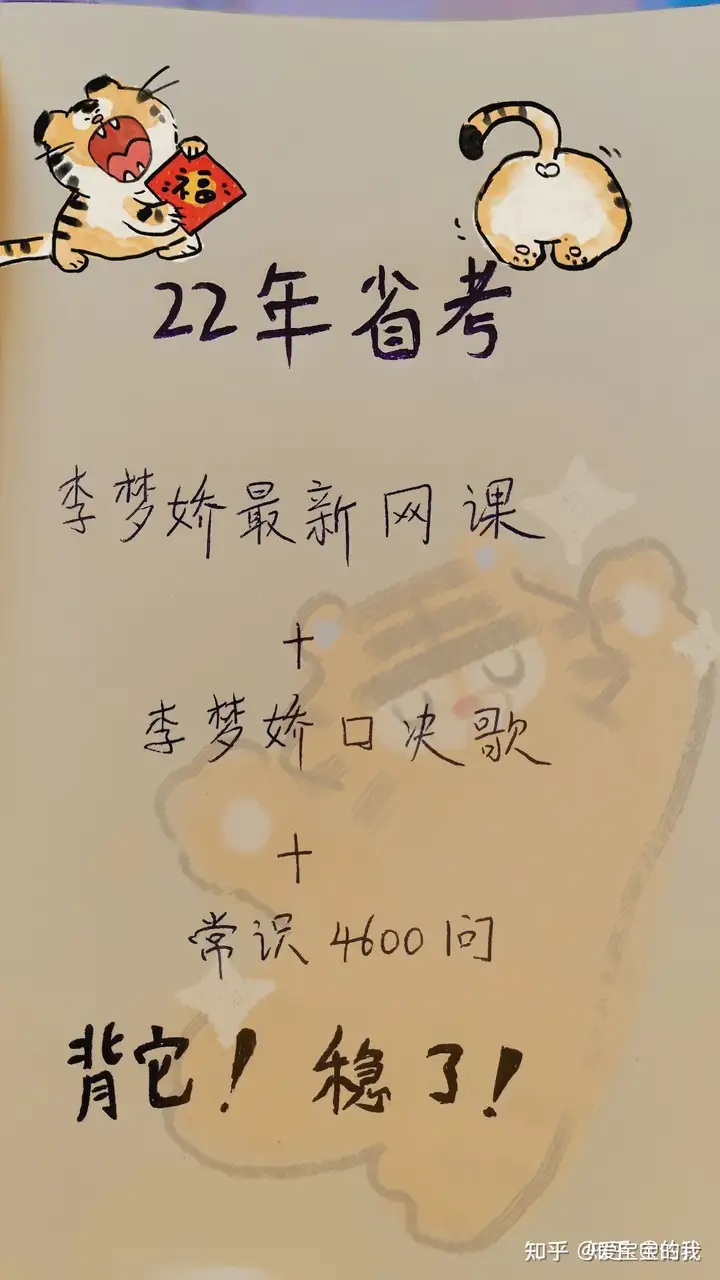 福
22年省考
李梦娇最新网课
+
李梦娇口决歌
+
常识4600问
背它！稳了！